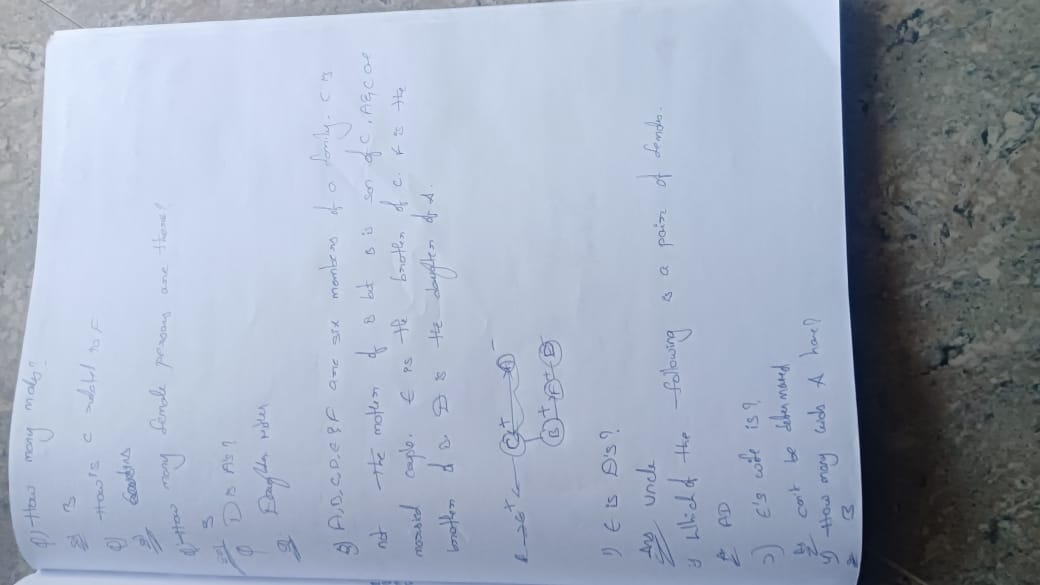 Q) How many males?
3
Q) How's C related to F
Q) How many female persons are there?
3
Q D is A's?
Daughter
Q) A, B, C, D, E & F are six members of a family. C is
not the mother of B but B is son of C. A & C are
married couple. E is the brother of C. F is the
brother of B. D is the daughter of A.
1) E is D's?
Ans Uncle
Which of the following is a pair of females.
AD
3) E's wife is?
can't be determined
4) How many kids A have?
3